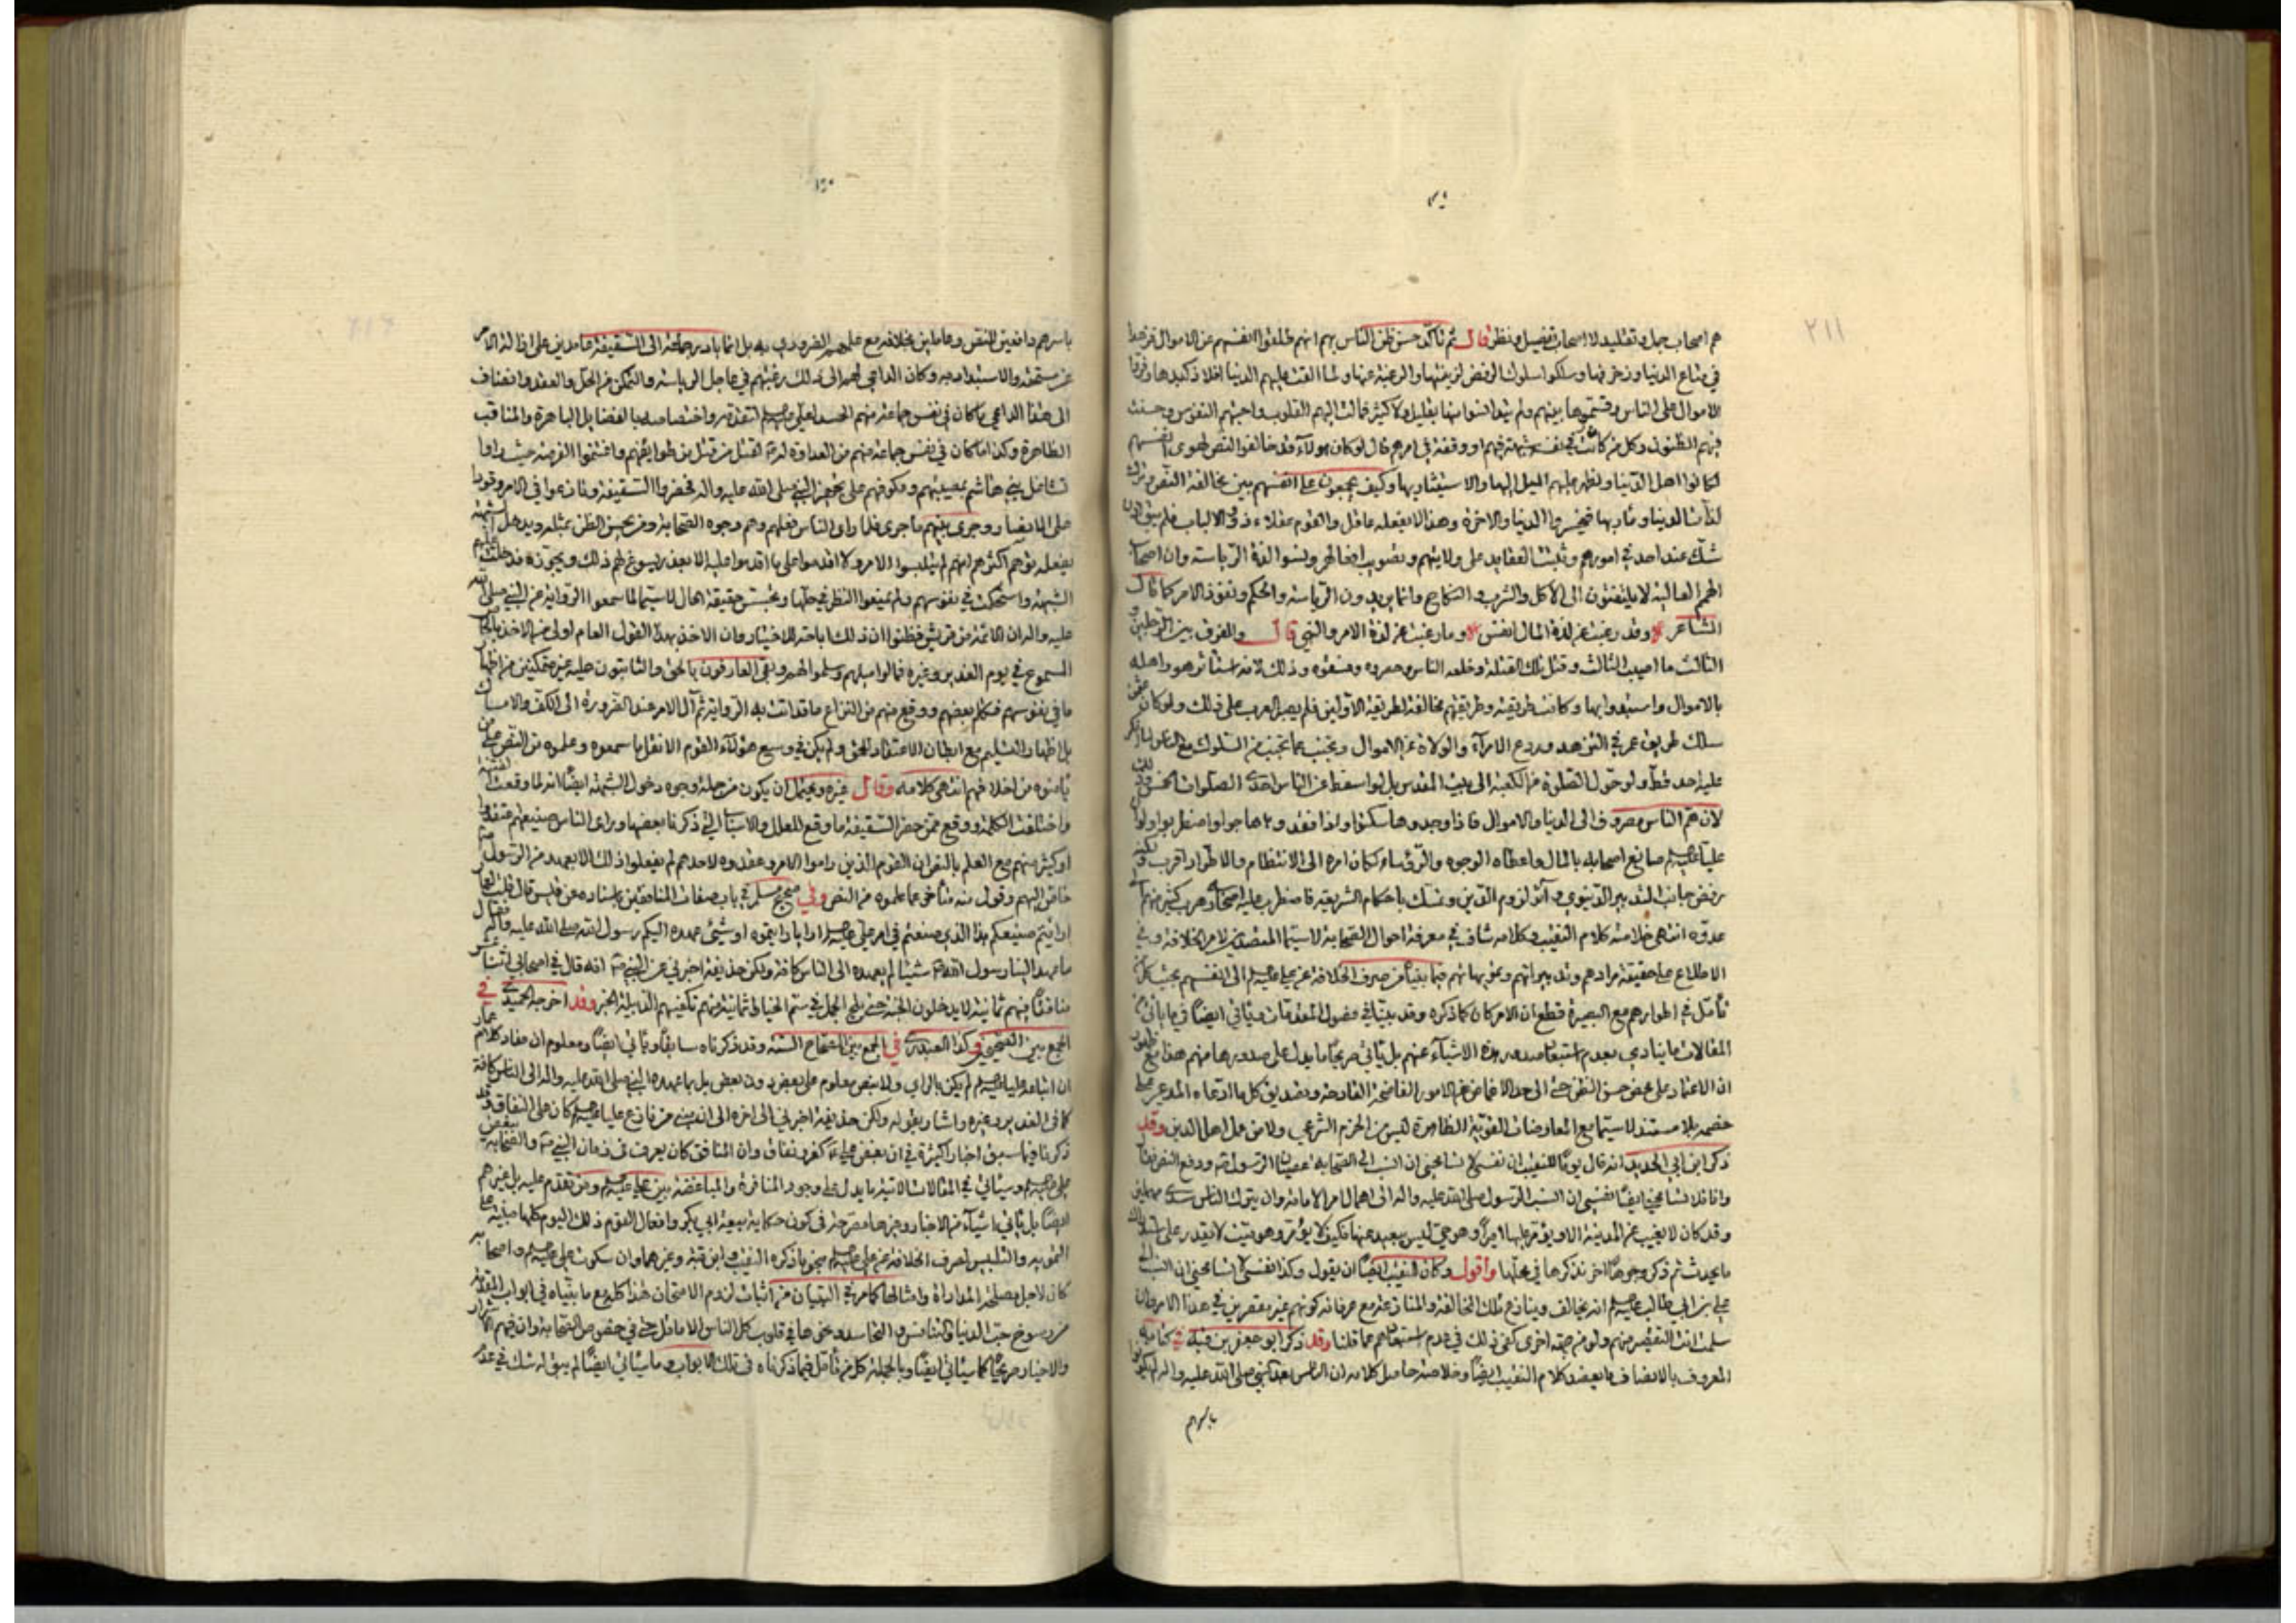 هم اصحاب جمل وتقليد لا اصحاب تفصيل ونظر قال ثم تأكد حسن ظن الناس بهم انهم ظلفوا انفسهم عن الاموال فزهدوا
في متاع الدنيا وزخرفها وسلكوا سلوك الرفض لزينتها والرغبة عنها
الاموال على الناس وقسموها بينهم ولم يتدنسوا منها بقليل ولا كثير فمالت اليهم القلوب واحبتهم النفوس وحسنت
فيهم الظنون وكل من كان في نفسه شبهة منهم او وقفة في امرهم قال لو كان هؤلاء قد خالفوا النص لهوى انفسهم
لكانوا اهل الدنيا ولظهر عليهم الميل اليها والاستيثار بها وكيف يجمعون على انفسهم بين مخالفة النص وترك
لذات الدنيا ومآربها فيخسروا الدنيا والاخرة وهذا لا يفعله عاقل والقوم عقلاء ذوو الالباب فلم يبق
شك عند احد في امورهم وثبتت العقايد على ولايتهم وتصويب افعالهم ونسوا لذة الرياسة وان اصحاب
الهمم العالية لا يلتفتون الى الاكل والشرب والنكاح وانما يريدون الرياسة والحكم ونفوذ الامر كما قال
الشاعر وقد رغبت عن لذة المال انفس وما رغبت عن لذة الامر والنهي قال والفرق بين الرجلين و
الثالث ما اصيب الثالث وقتل تلك القتلة وخلعه الناس وحصروه وذلك لانه استأثر هو واهله
بالاموال واستبدوا بها وكانت طريقته وطريقتهم مخالفة لطريقة الاولين فلم يصبر العرب على ذلك ولو كان عثمن
سلك طريق عمر في الزهد وردع الامراء والولاة عن الاموال وتجنب
عليه احد قط ولو حول الصلوة من الكعبة الى بيت المقدس بل لو اسقط عن الناس احدى الصلوات الخمس
لان هم الناس مصروف الى الدنيا والاموال فاذا وجدوها سكنوا واذا فقدوها هاجوا واضطربوا ولو ان
عليا عليه السلم صانع اصحابه بالمال واعطاه الوجوه والرؤساء لكان امره الى الانتظام والاطراد اقرب
رفض جانب التدبير الدنيوي وآثر لزوم الدين وتمسك باحكام الشريعة فاضطرب عليه اصحابه وهرب كثير منهم الى
عدوه انتهى خلاصة كلام النقيب وكلامه شاف في معرفة احوال الصحابة لاسيما المتصدين لامر الخلافة وفي
الاطلاع على حقيقة مرادهم وتدبيراتهم وتمويهاتهم فيما بينهم من صرف الخلافة عن علي عليه السلم الى انفسهم بحيث كل من
تأمل في اطوارهم مع البصيرة قطع ان الامر كان كما ذكره وقد بينا في فصول المقدمات وياتي ايضا في
المقالات ما ينادي بعدم استبعاد صدور هذه الاشياء عنهم بل ياتي صريحا ما يدل على صدورها منهم هذا مع
ان الاعتماد على محض حسن الظن حتى الى حد الاغماض عن الامور الفاضحة القادحة وتصديق كل ما ادعاه المدعي على
خصمه بلا مستند لاسيما مع المعارضات القوية الظاهرة ليس من الحزم الشرعي ولا من عمل اهل الدين وقد
ذكر ابن ابي الحديد انه قال يوما للنقيب ان نفسي لا تسامحني ان انسب الى الصحابة عصيان الرسول ودفع النص فقال
وانا فلا تسامحني ايضا نفسي ان انسب الرسول صلى الله عليه واله الى اهمال امر الامامة وان يترك الناس سدى مهملين
وقد كان لا يغيب عن المدينة الا ويؤمر عليها اميرا وهو حي ليس ببعيد عنها فكيف لا يؤمر وهو ميت لا يقدر على استدراك
ما يحدث ثم ذكر وجوها اخر نذكرها في محلها واقول وكان للنقيب ايضا ان يقول وكذا نفسي لا تسامحني ان انسب الى
علي بن ابي طالب عليه السلم انه يخالف وينازع تلك المخالفة والمنازعة مع عرفانه كونهم غير مقصرين في هذا الامر وان
سلمت انت التقصير منهم ولو من جهة اخرى كفى ذلك في عدم استبعادهم عما قلنا وقد ذكر ابو جعفر بن قبة في كتابه
المعروف بالانصاف ما يعضد كلام النقيب ايضا وخلاصة حاصل كلامه ان الناس بعد النبي صلى الله عليه واله لم يكونوا
باسرهم
باسرهم دافعين للنص وعاملين بخلافه مع علمهم الضروري به بل انما بادر جماعة الى السقيفة عامدين على ازالة الامر
عن مستحقه والاستبداد به وكان الداعي لهم الى ذلك رغبتهم في عاجل الرياسة والتمكن من الحل والعقد وانضاف
الى هذا الداعي ما كان في نفس جماعة منهم الحسد لعلي عليه السلم لتقدمه واختصاصه بالفضايل الباهرة والمناقب
الظاهرة وكذا ما كان في نفس جماعة منهم من العداوة له لقتل من قتل من طوايفهم واغتنموا الفرصة حيث راوا
تشاغل بني هاشم بمصيبتهم وعكوفهم على تجهيز النبي صلى الله عليه واله فحضروا السقيفة ونازعوا في الامر وقووا
على الانصار وجرى بينهم ما جرى فلما راى الناس فعلهم وهم وجوه الصحابة ومن يحسن الظن بمثله ويدخل الشبهة
بفعله توهم اكثرهم انهم لم يتلبسوا الامر ولا اقدموا على ما اقدموا عليه الا بعذر يسوغ لهم ذلك ويجوزه فدخلت عليهم
الشبهة واستحكمت في نفوسهم ولم يمعنوا النظر في حلها لاسيما لما سمعوا الرواية عن النبي صلى الله
عليه واله ان الائمة من قريش فظنوا ان ذلك اباحة للاختيار وان الاخذ بهذا القول العام اولى من الاخذ بالخاص
المسموع في يوم الغدير وغيره فمالوا ميلهم وسلموا لهم وبقي العارفون بالحق والثابتون عليه غير متمكنين من اظهار
ما في نفوسهم فتكلم بعضهم ووقع منهم من النزاع ما قد اتت به الرواية ثم آل الامر عند الضرورة الى الكف والامساك
بل اظهار التسليم مع ابطان الاعتقاد للحق ولم يكن في وسع هؤلاء القوم الا نقل ما سمعوه وعلموه من النص على من
يأمنوه من اخلافهم انتهى كلامه وقال غيره ويحتمل ان يكون من جملة وجوه دخول الشبهة ايضا انه لما وقعت الفتنة
واختلفت الكلمة ووقع ممن حضر السقيفة ما وقع للعلل والاسباب التي ذكرنا بعضها وراى الناس صنيعهم
او كثير منهم مع العلم بالنص ان القوم الذين راموا الامر وعقدوه لاحدهم لم يفعلوا ذلك الا بعهد من الرسول
خاص اليهم وقول منه متأخر عما علموه من النص وفي صحيح مسلم في باب صفات المنافقين باسناده عن قيس قال قلت لعمار
ارايتم صنيعكم هذا الذي صنعتم في امر علي عليه السلم ارايا رايتموه او شيئا عهده اليكم رسول الله صلى الله عليه واله فقال
ما عهد الينا رسول الله شيئا لم يعهده الى الناس كافة ولكن حذيفة اخبرني عن النبي انه قال في اصحابي اثنا عشر
منافقا منهم ثمانية لا يدخلون الجنة حتى يلج الجمل في سم الخياط ثمانية منهم تكفيهم الدبيلة الخبر وقد اخرجه الحميدي في
الجمع بين الصحيحين وكذا العبدري في الجمع بين الصحاح الستة وقد ذكرناه سابقا وياتي ايضا ومعلوم ان مفاد كلام عمار
ان اتباعه عليا عليه السلم لم يكن بالراي ولا بنص معلوم على بعض دون بعض بل بما عهده النبي صلى الله عليه واله الى الناس كافة
كما في الغدير وغيره واشار بقوله ولكن حذيفة اخبرني الى اخره الى ان من نازع عليا عليه السلم كان على النفاق وقد
ذكرنا فيما سبق اخبارا كثيرة في ان بغض علي كفر ونفاق وان المنافق كان يعرف في زمان النبي والصحابة ببغض
علي عليه السلم وسياتي في المقالات الاتية ما يدل على وجود المنافرة والمباغضة بين علي عليه السلم ومن تقدم عليه بل غيرهم
ايضا بل ياتي اشياء من الاخبار وغيرها مصرحة في كون حكاية بيعة ابي بكر وافعال القوم ذلك اليوم كلها مبنية على
التمويه والتلبيس لصرف الخلافة عن علي عليه السلم بنحو ما ذكره النقيب وابن قبة وغيرهما وان سكوت علي عليه السلم واصحابه
كان لاجل مصلحة المداراة وامثالها كما مر في التبيان من اثبات لزوم الامتحان هذا كله مع ما بيناه في ابواب المقدمة
من رسوخ حب الدنيا والتنافس والتحاسد ونحوها في قلوب كل الناس الا ما قل حتى في خصوص الصحابة وان فيهم الاشرار
والاخيار صريحا كما سياتي ايضا وبالجملة كل من تأمل فيما ذكرناه في تلك الابواب وما سياتي ايضا لم يبق له شك في عدم